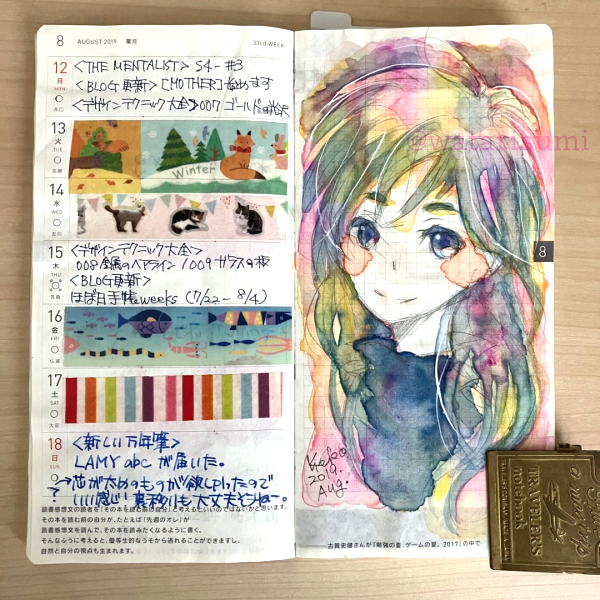 8 AUGUST 2019 葉月 33rd WEEK
12 月 MON
<THE MENTALIST> S4-#3
<BLOG更新> [MOTHER] 始めます
<デザインテクニック大全> 007 ゴールドの光沢
13 火 TUE 先勝
Winter
14 水 WED 友引
15 木 THU 先負
<デザインテクニック大全>
008 金属のヘアライン / 009 ガラスの板
<BLOG更新>
ほぼ日手帳weeks (7/22-8/4)
16 金 FRI 仏滅
17 土 SAT 大安
18 日 SUN
<新しい万年筆>
LAMY abcが届いた。
→芯が太めのものが欲しかったので
いい感じ!裏移りも大丈夫そうねー。
?
読書感想文の読者を「その本を読む前の自分」と考えるもいいのではないかと思います。
その本を読む前の自分が、たとえば「先週のオレ」が
読書感想文を読んで、その本を読みたくなるように書く。
そんなふうに考えると、優等生的なうそから逃れることができますし、
自然と自分の視点も生まれます。
@watarizumi
8
2019.
Aug.
古賀史健さんが『勉強の夏、ゲームの夏。2017』の中で
TRAVELER'S
notebook